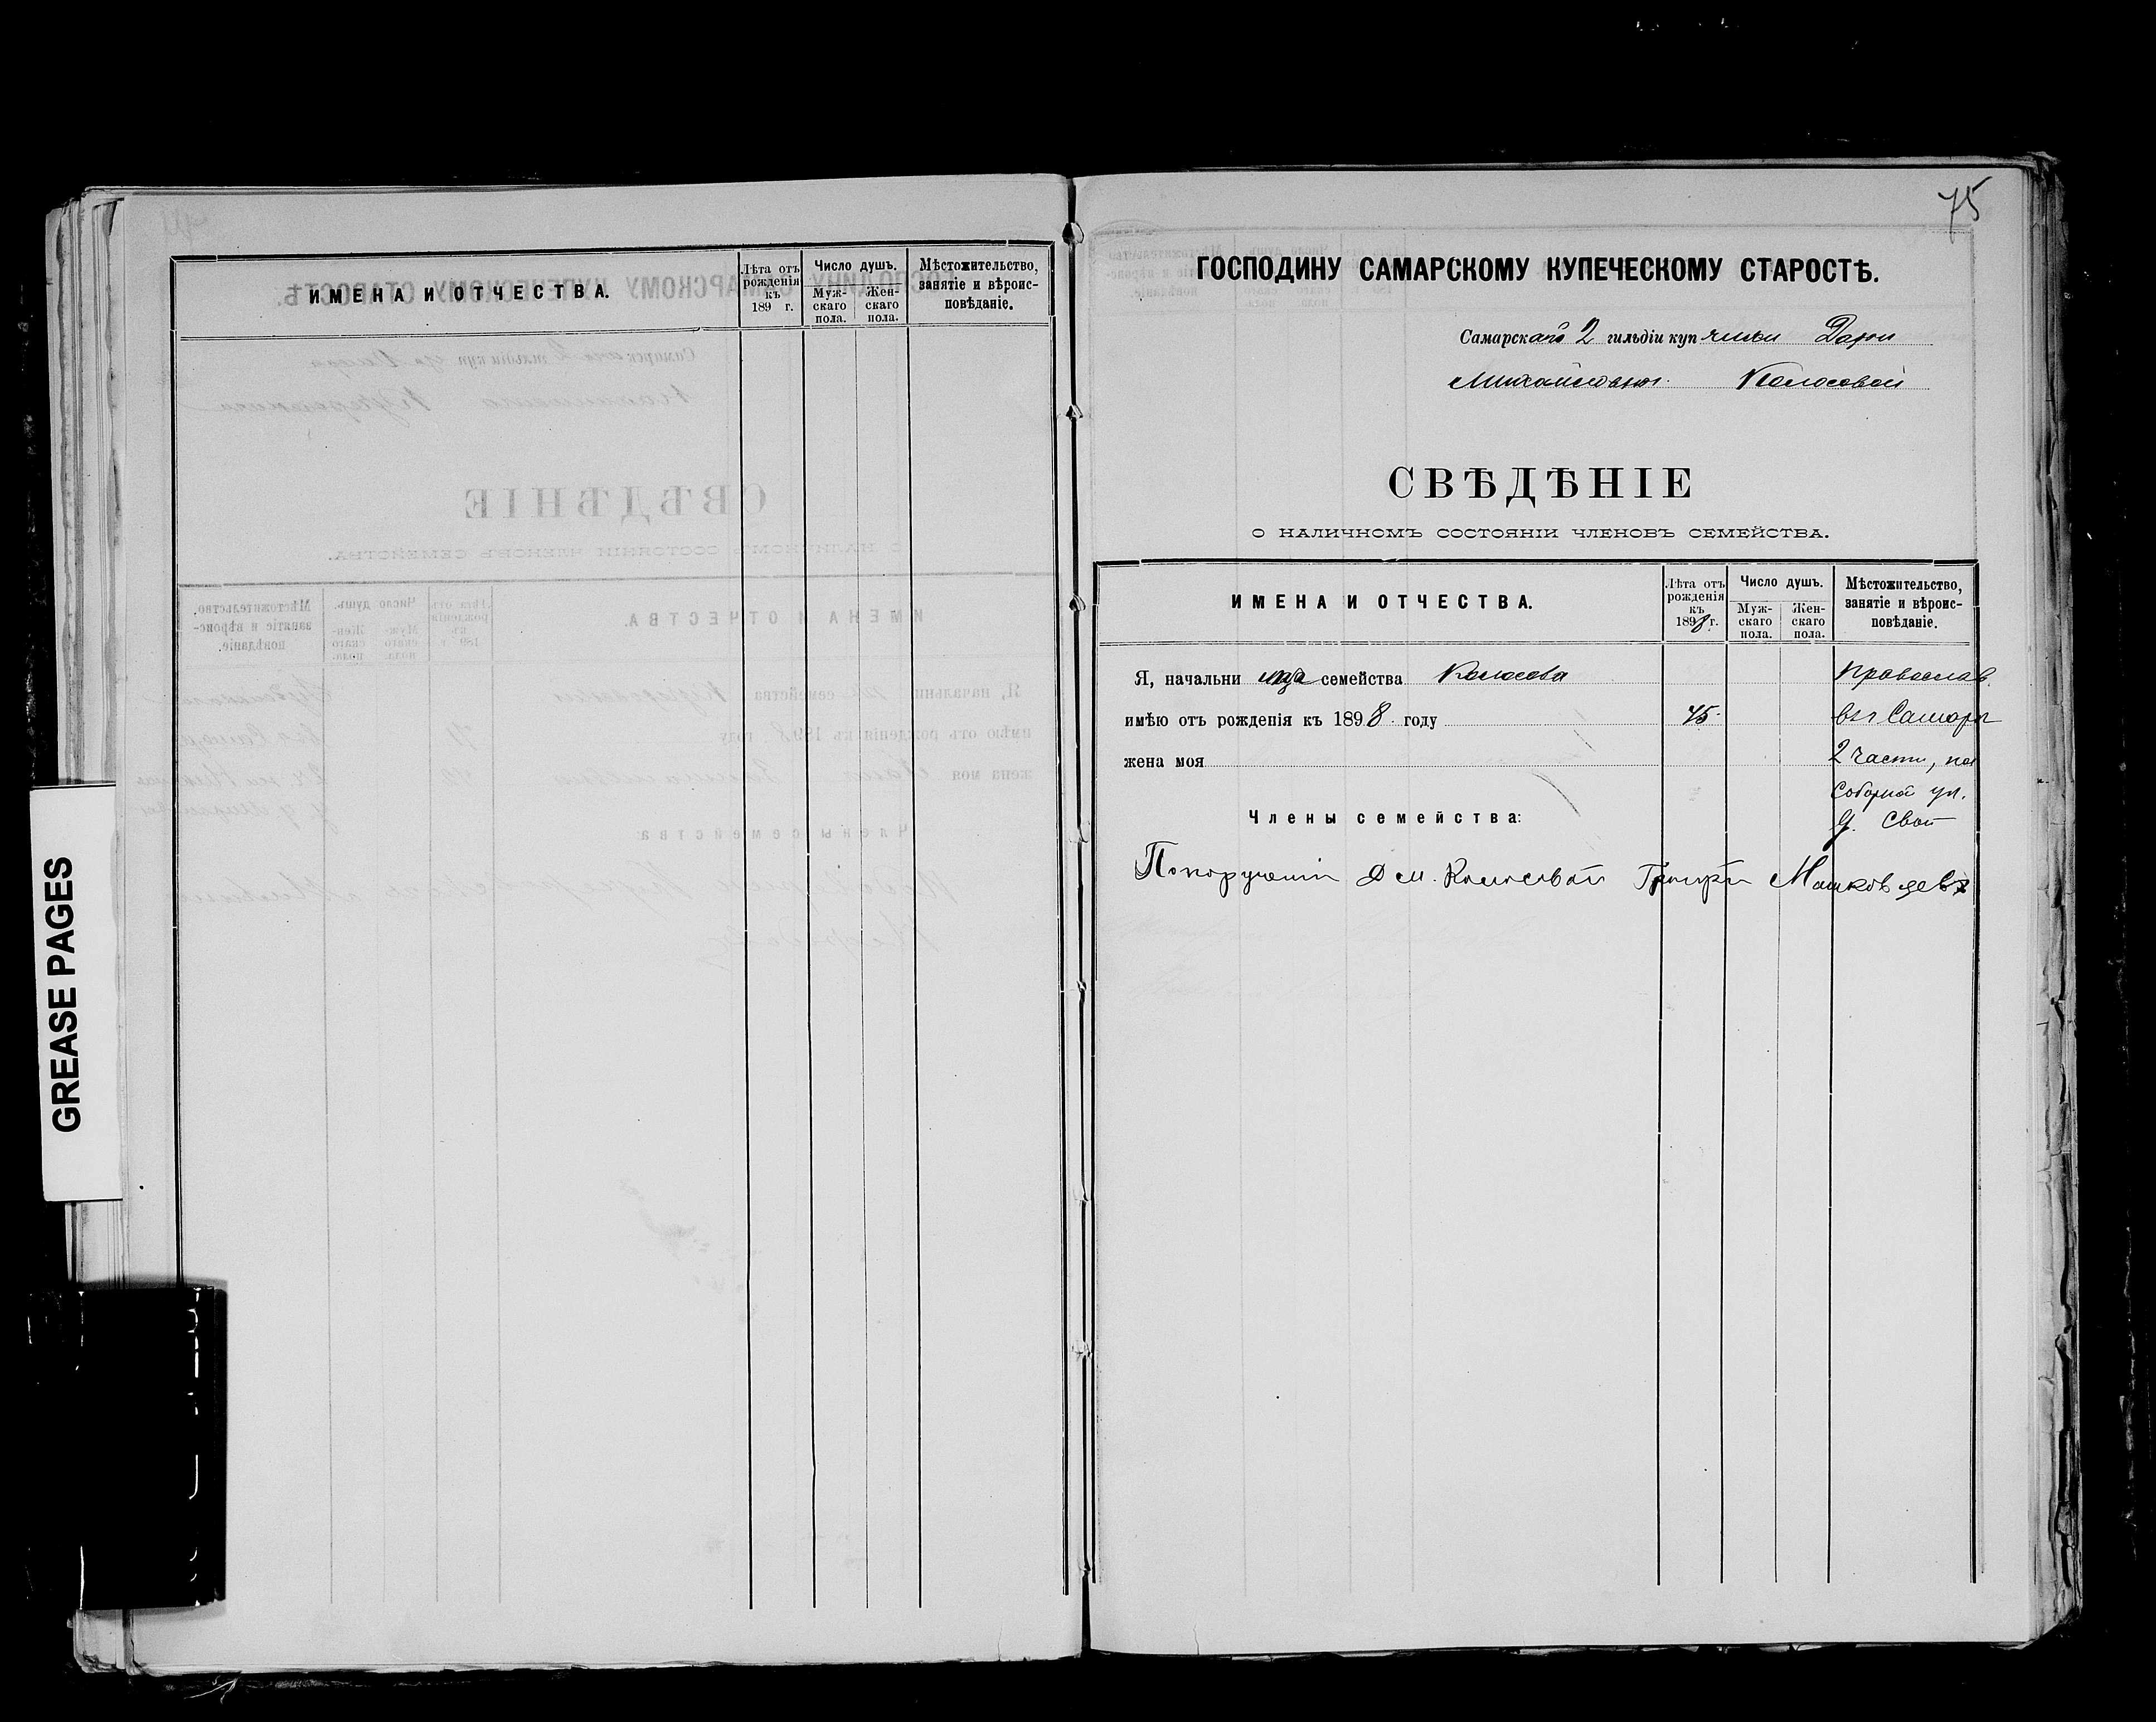 ИМЕНА И ОТЧЕСТВА.
Лѣта отъ рожденія къ 189 г.
Число душъ.
Муж-скаго пола.
Жен-скаго пола.
Мѣстожительство, занятіе и вѣроис-повѣданіе.
GREASE PAGES
75
ГОСПОДИНУ САМАРСКОМУ КУПЕЧЕСКОМУ СТАРОСТѢ.
Самарскаго 2 гильдіи купчихи Дарьи
Михайловны Колосовой
СВѢДѢНІЕ
О НАЛИЧНОМЪ СОСТОЯНІИ ЧЛЕНОВЪ СЕМЕЙСТВА.
ИМЕНА И ОТЧЕСТВА.
Лѣта отъ рожденія къ 1898 г.
Число душъ.
Муж-скаго пола.
Жен-скаго пола.
Мѣстожительство, занятіе и вѣроис-повѣданіе.
Я, начальница семейства Колосова Православ.
имѣю отъ рожденія къ 1898 году 45 въ г Самарѣ
жена моя 2 части, по
Соборной ул.
Члены семейства: д. Свой
По порученiи Д М. Колосовой